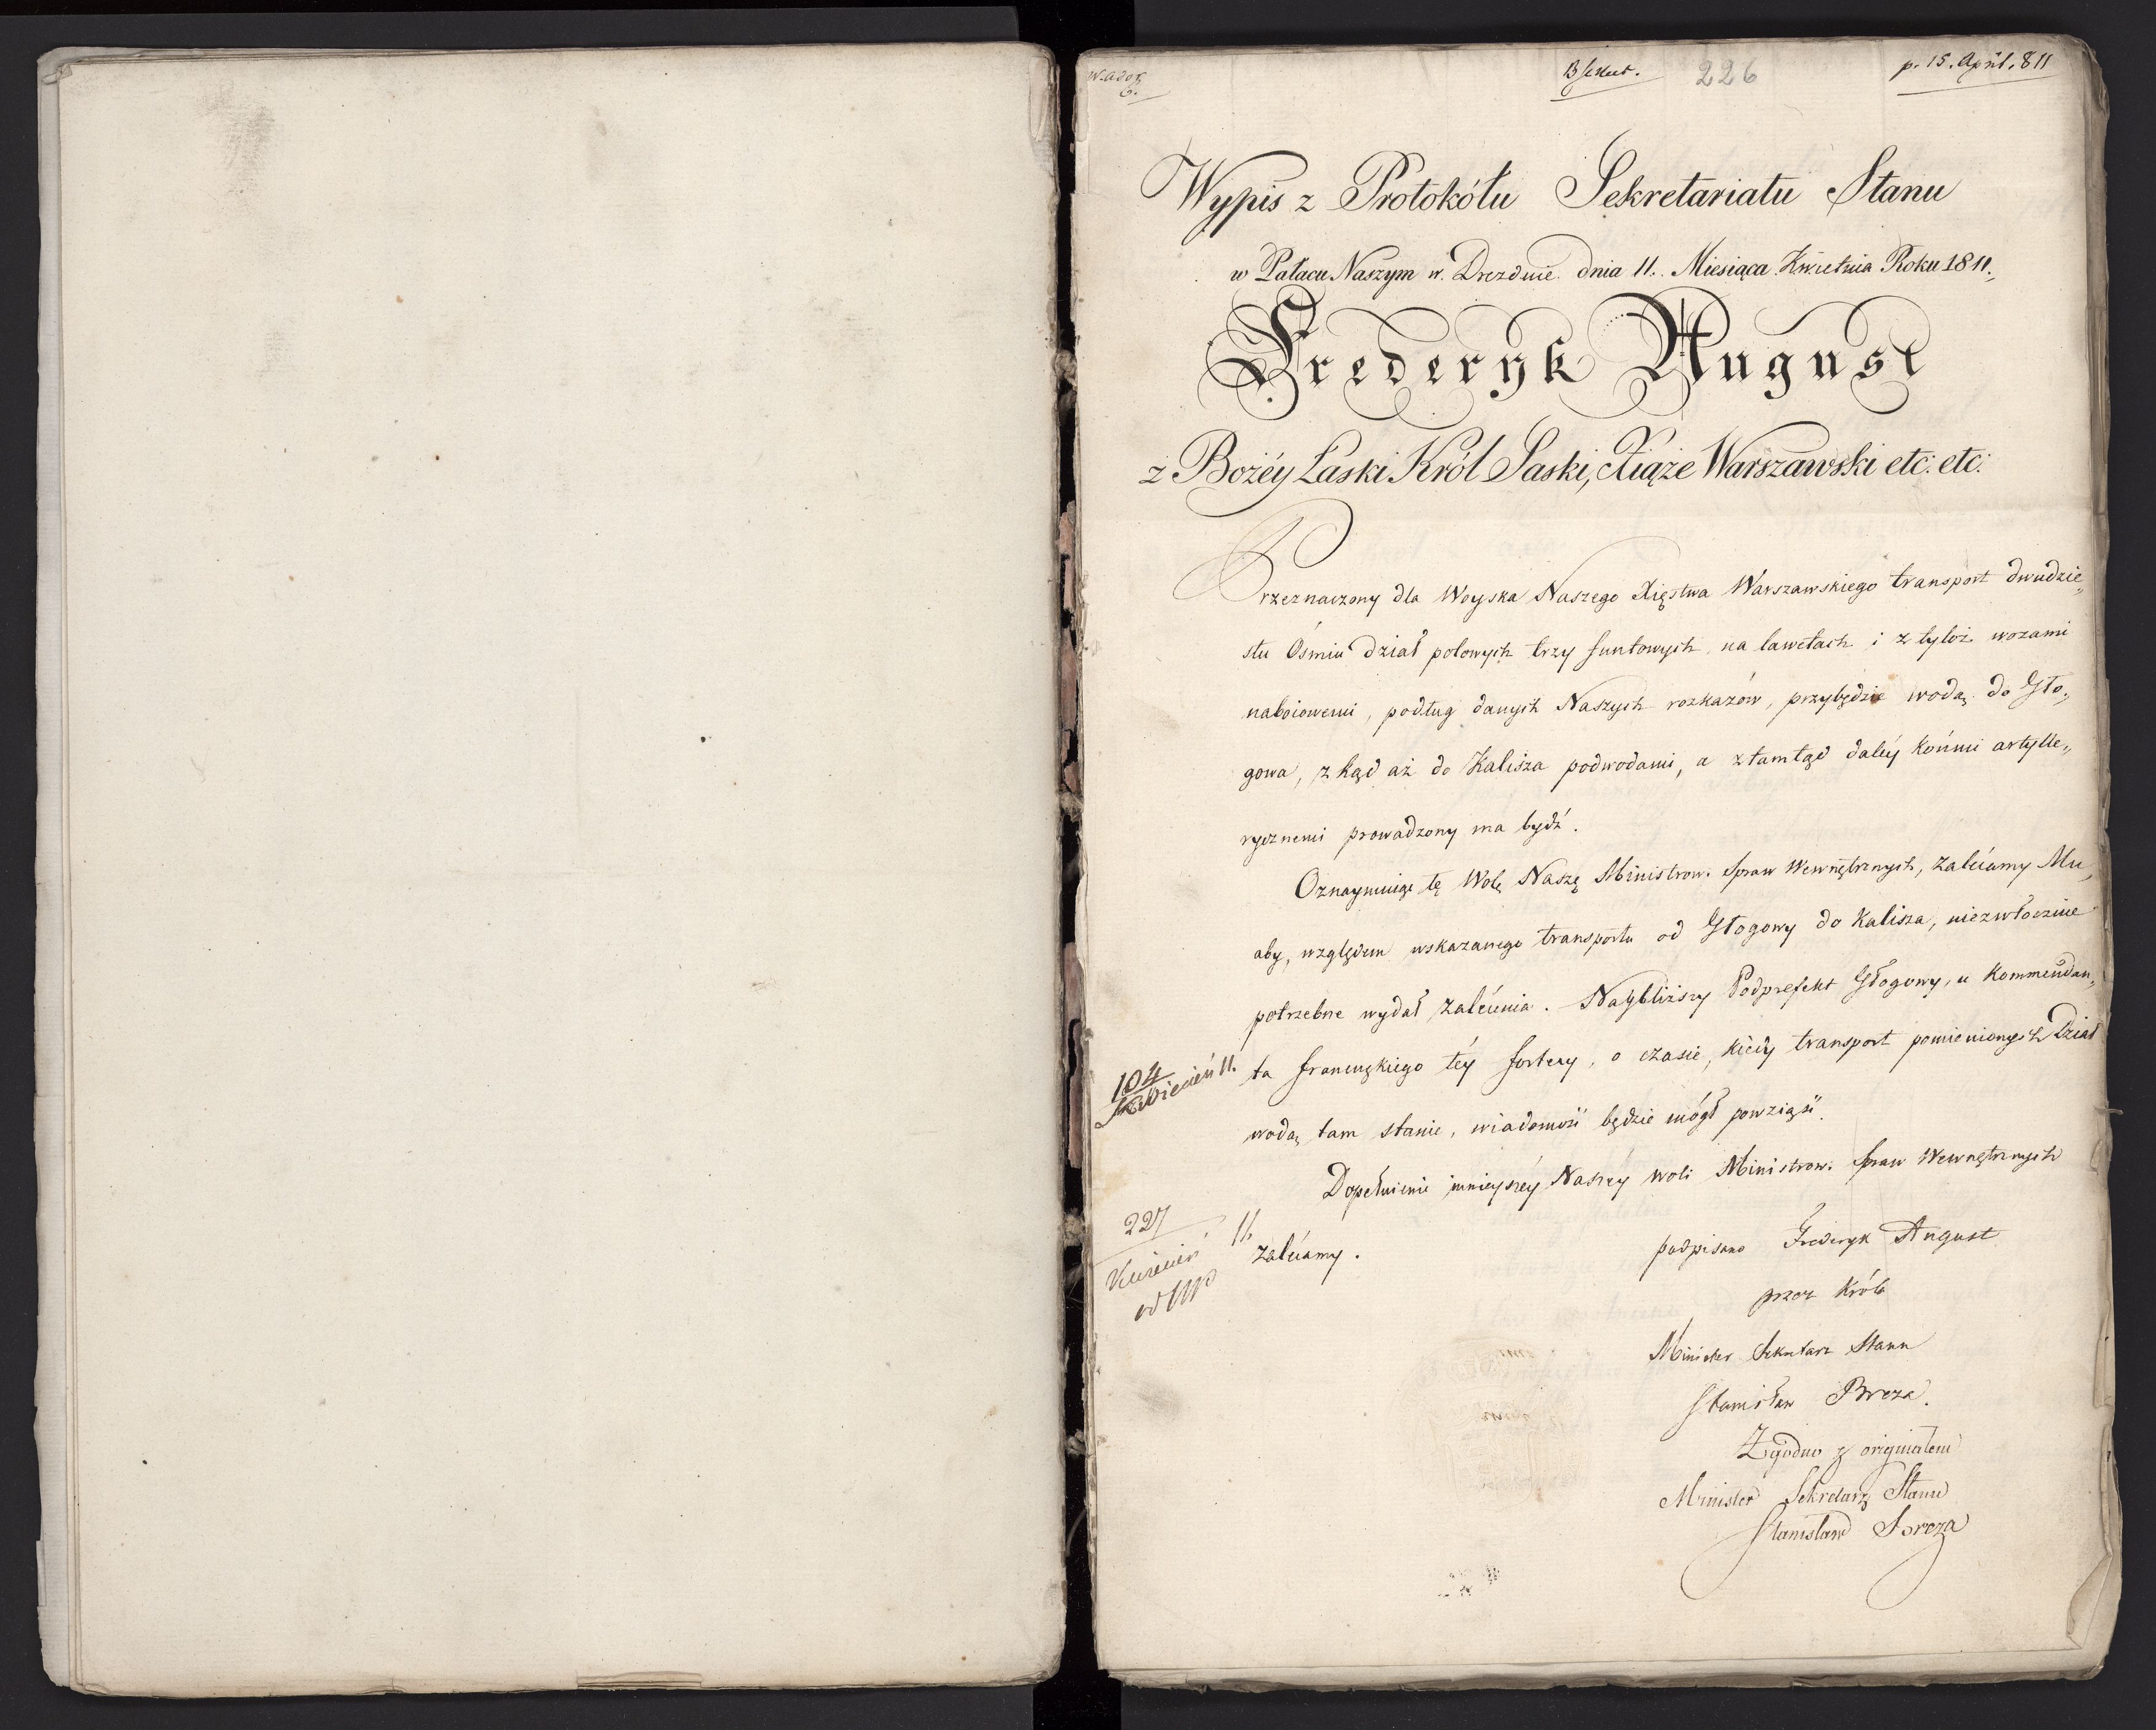 226
p. 15. April. 811
Wypis z Protokółu Sekretariatu Stanu
w Pałacu Naszym w Dreznie dnia 11. Miesiąca Kwietnia Roku 1811.
Frederyk August
z Bożéy Łaski Król Saski, Xiąże Warszawski etc: etc:
Przeznaczony dla Woyska Naszego Xięstwa Warszawskiego transport dwudzie„
stu Ośmiu dział polowych trzy funtowych na lawetach i z tyloż wozami
naboiowemi, podług danych Naszych rozkazów, przybędzie wodą do Gło„
gowa, zkąd aż do Kalisza podwodami, a ztamtąd daléy końmi artylle„
rycznemi prowadzony ma bydź.
Oznaymuiąc tę Wolą Naszę Ministrow. Spraw Wewnętrznych, zalécamy Mu,
aby, względem wskazanego transportu od Głogowy do Kalisza, niezwłocznie
potrzebne wydał zalécenia. Naybliższy Podprefekt Głogowy, u Kommendan„
ta francuzkiego téy fortecy, o czasie, kiedy transport pomienionych Dział
wodą tam stanie, wiadomość będzie mógł powziąść.
104
Kwiecień 11.
Dopełnienie ninieyszéy Naszéy woli Ministrow. Spraw Wewnętrznych
zalécamy.
227
Kwiecień 11.
podpisano Frederyk August
przez Króla
Minister Sekretarz Stanu
Stanisław Breza.
Zgodno z originałem
Minister Sekretarz Stanu
Stanisław Breza